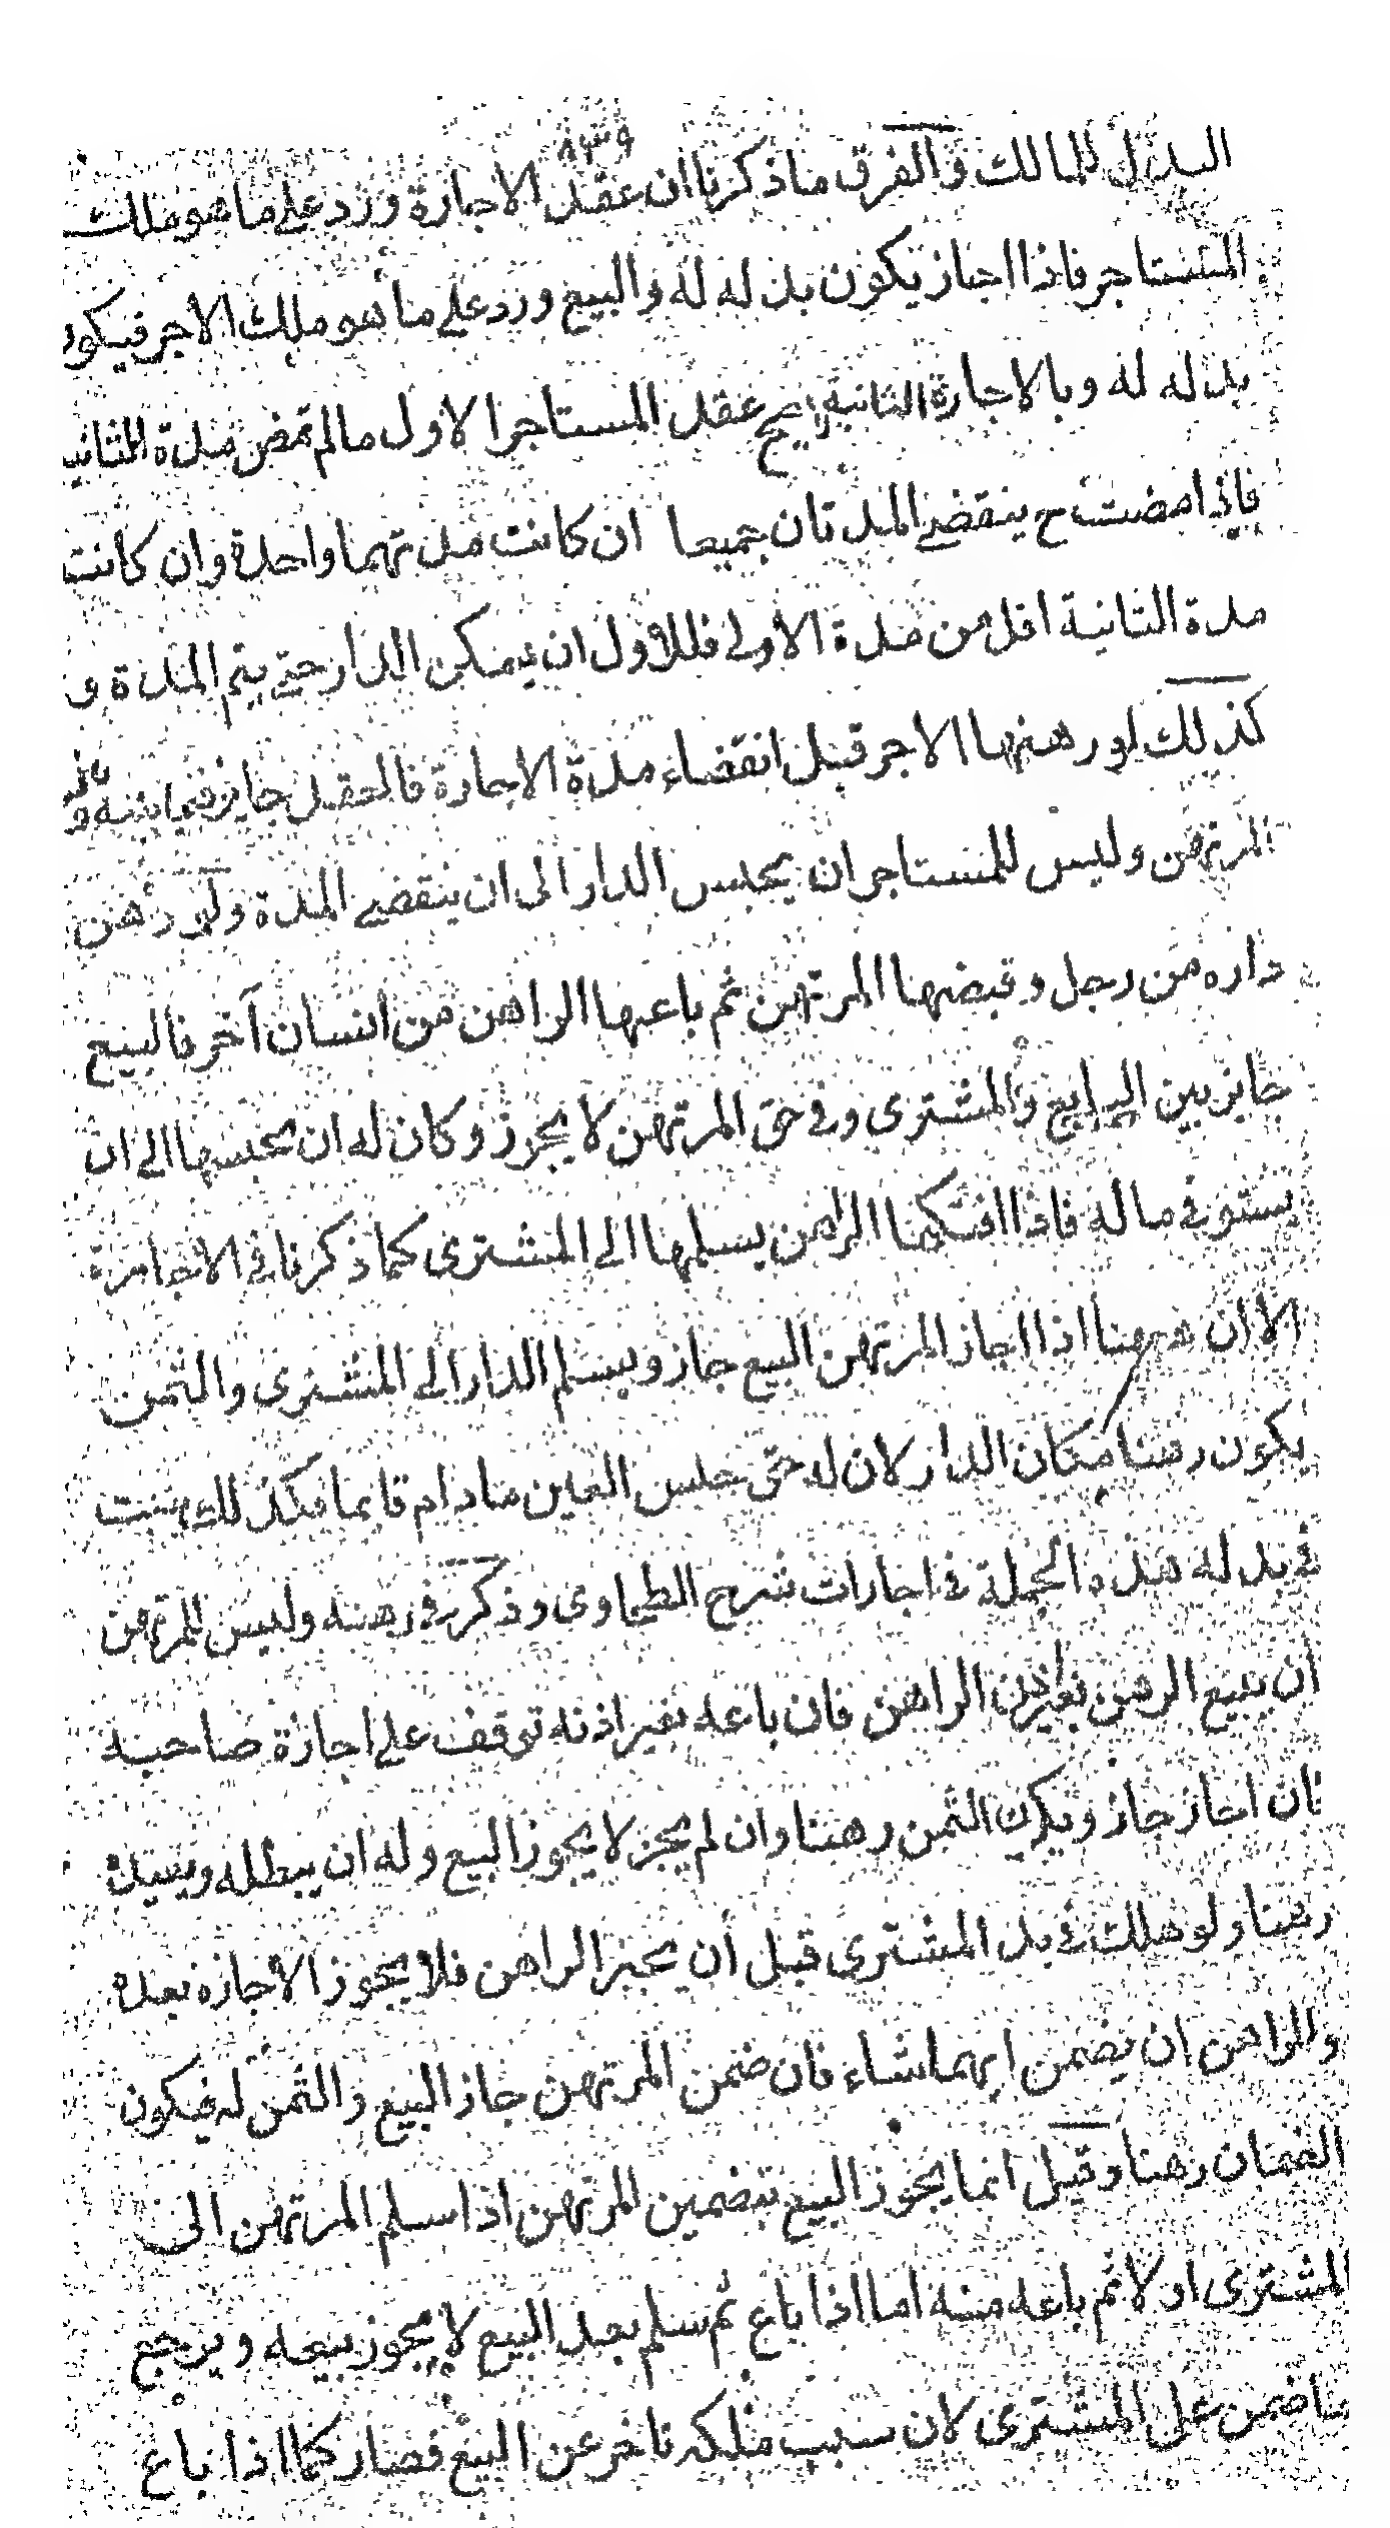 البدل للمالك والفرق ماذكرنا ان عقد الاجارة ورد على ما هو ملك
المستاجر فاذا اجاز يكون بدله له والبيع ورد على ما هو ملك الاجر فيكون
بدله له وبالاجارة الثانية عقد المستاجر الاول مالم تمض مدة الثانية
فاذا مضت ح ينقضى المدتان جميعا ان كانت مدتهما واحدة وان كانت
مدة الثانية اقل من مدة الاولى فللاول ان يمسكن الدار حتى يتم المدة و
كذلك لو رهنها الاجر قبل انقضاء مدة الاجارة فالعقد جايز فيما بينه وبين
المرتهن وليس للمستاجر ان يحبس الدار الى ان ينقضى المدة ولو رهن
داره من رجل وقبضها المرتهن ثم باعها الراهن من انسان آخر فالبيع
جايز بين البايع والمشترى وفى حق المرتهن لا يجوز وكان له ان يحبسها الى ان
يستوفى ماله فاذا افتكها الراهن يسلمها الى المشترى كما ذكرنا فى الاجارة
الا ان ههنا اذا اجاز المرتهن البيع جاز ويسلم الدار الى المشترى والثمن
يكون رهنا مكان الدار لان له حق حبس العين مادام قايما فكذلك يثبت
فى بدله هذه الجملة فى اجارات شرح الطحاوى وذكر فى رهنه وليس للمرتهن
ان يبيع الرهن بغير اذن الراهن فان باعه بغير اذنه توقف على اجازة صاحبه
فان اجاز جاز ويكون الثمن رهنا وان لم يجز لا يجوز البيع وله ان يبطله ويعيده
رهنا ولو هلك فى يد المشترى قبل أن يجيز الراهن فلا يجوز الاجازه بعده
وللراهن ان يضمن ايهما شاء فان ضمن المرتهن جاز البيع والثمن له فيكون
الضمان رهنا وقيل انما يجوز البيع بتضمين المرتهن اذا سلم المرتهن الى
المشترى اولا ثم باعه منه اما اذا باع ثم سلم بعد البيع لا يجوز بيعه ويرجع
بما ضمن على المشترى لان سبب ملكه تاخر عن البيع فصار كما اذا باع